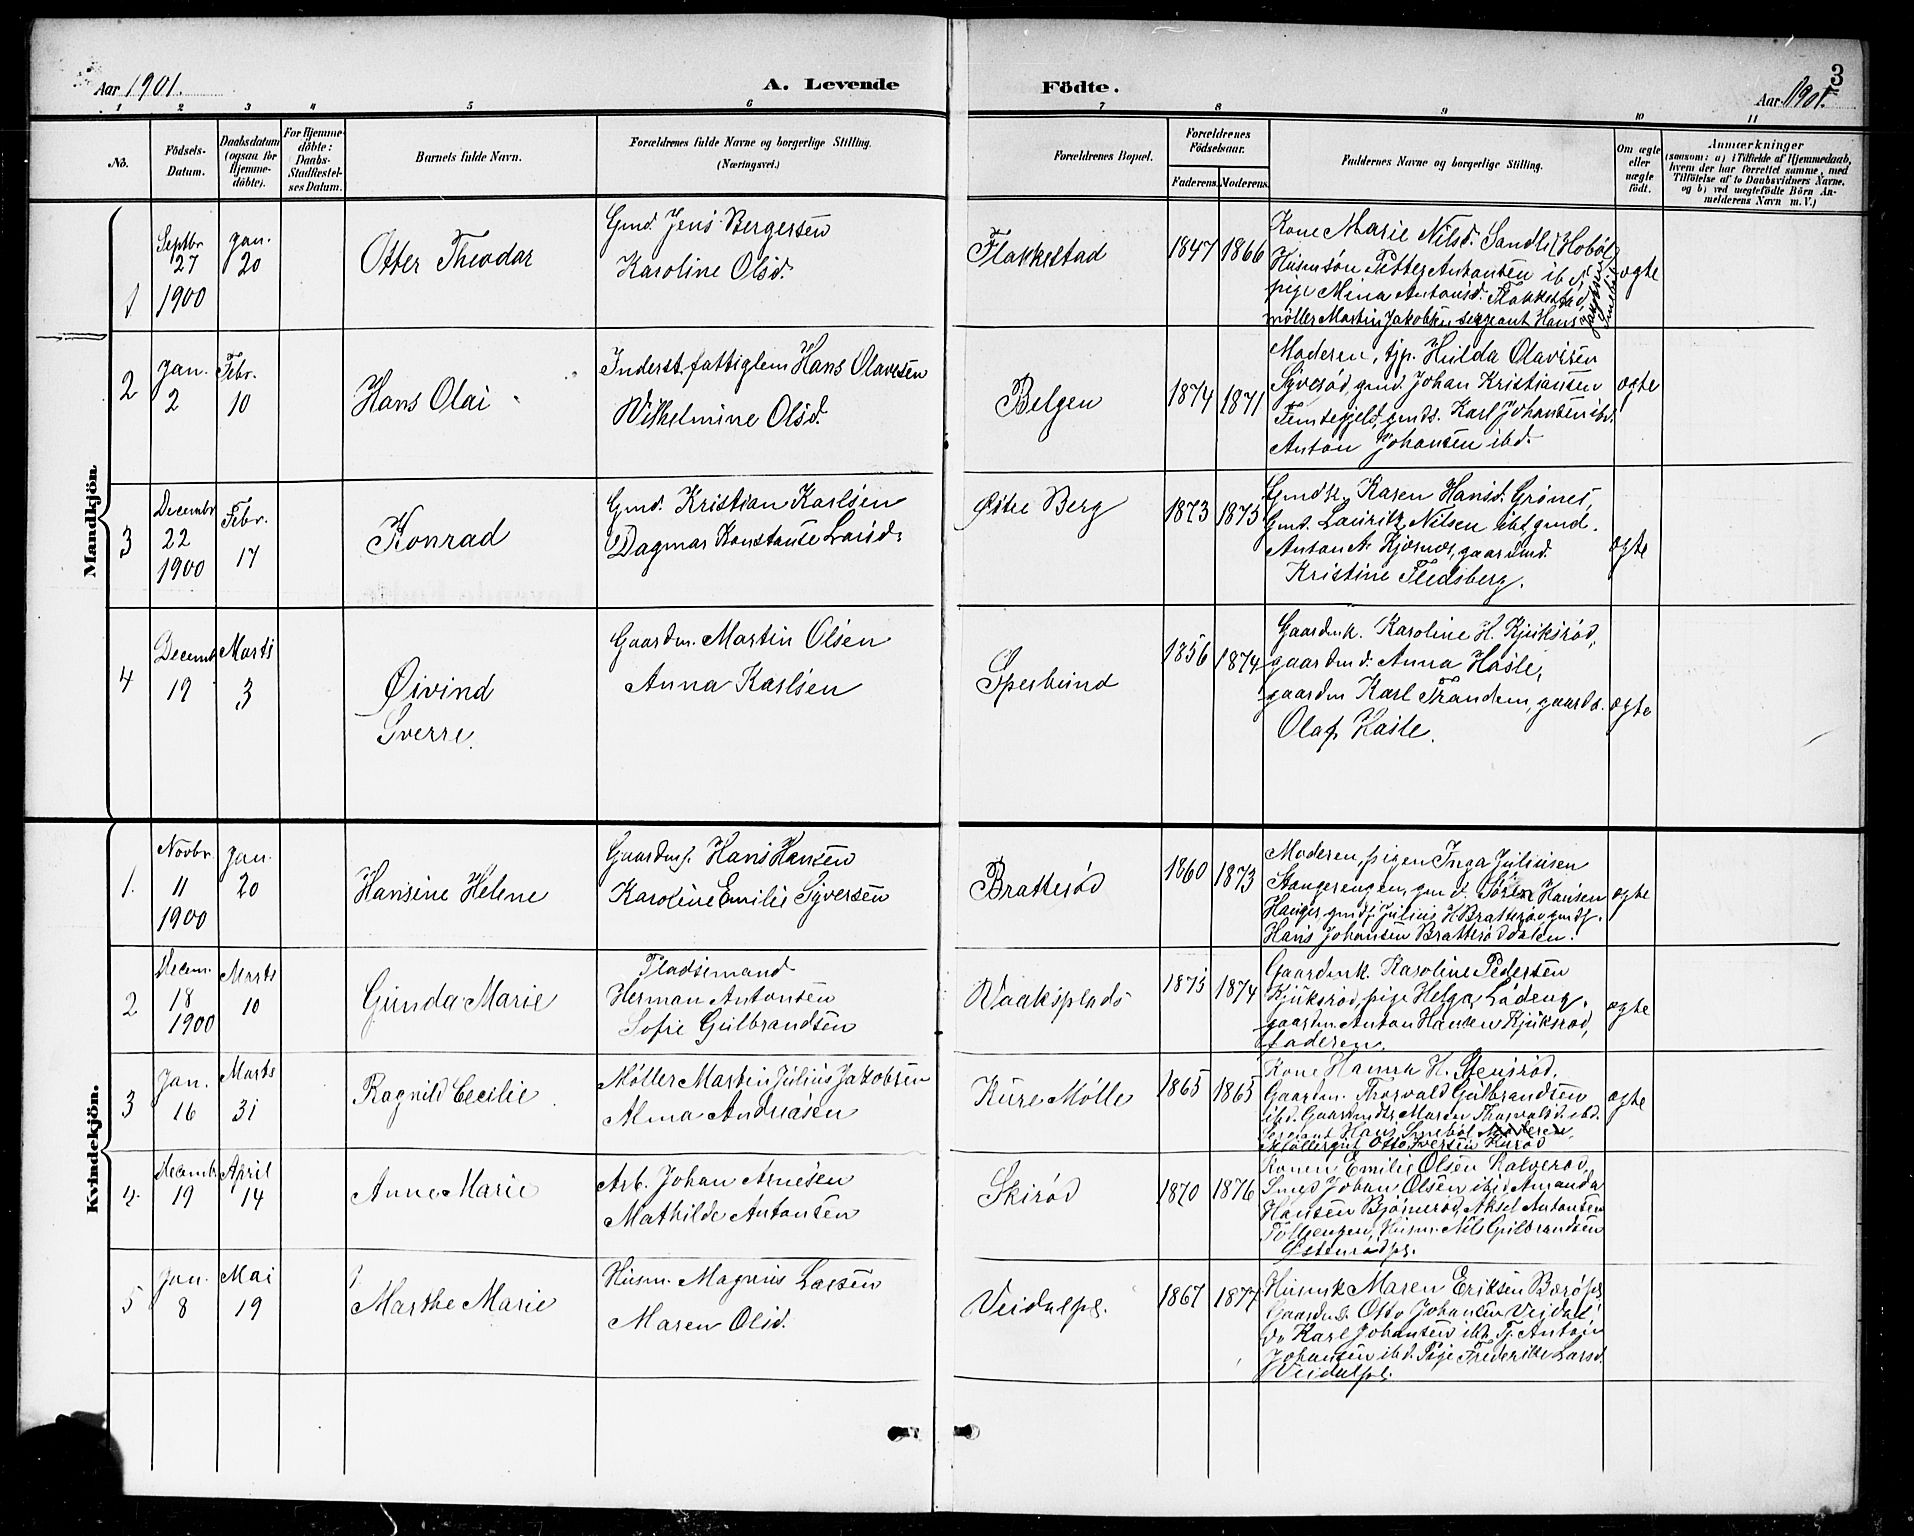 Aar 1901.
A. Levende
Födte.
3
Aar 1901.
1 2 3 4 5 6 7 8 9 10 11
No.
Födsels-
Datum.
Daabsdatum
(ogsaa for
Hjemme-
döbte).
For Hjemme-
döbte:
Daabs-
Stadfæstel-
ses Datum.
Barnets fulde Navn.
Forældrenes fulde Navne og borgerlige Stilling.
(Næringsvei.)
Forældrenes Bopæl.
Forældrenes
Födselsaar.
Faderens.
Moderens.
Faddernes Navne og borgerlige Stilling.
Om ægte
eller
uægte
født.
Anmærkninger
(saasom: a) i Tilfælde af Hjemmedaab,
hvem der har forrettet samme, med
Tilföielse af to Daabsvidners Navne,
og b) ved uægtefödte Börn An-
melderens Navn m. V.)
Mandkjön.
1
Septbr.
27
1900
Jan.
20
Otter Theodor
Gmd. Jens Bergersen
Karoline Olsd.
Flakkestad
1847
1866
Kone Marie Nilsd. Sandli (Hobøl)
Husmsøn Petter Antonsen ibd.
pige Mina Antonsd. Flakkestad
møller Martin Jakobsen sergeant Hans
ægte
2
Jan.
2
Febr.
10
Hans Olai
Inderst. fattiglem Hans Olavesen
Wilhelmine Olsd.
Belgen
1874
1871
Moderen, tjp. Hulda Olavisen
gmd. Johan Kristiansen
gmds. Karl Johansen ibd.
Anton Johansen ibd.
ægte
3
Decembr
22
1900
Febr.
17
Konrad
Gmd. Kristian Karlsen
Dagmar Konstanse Larsd.
Østre Berg
1873
1875
Gmdk. Karen Hansd. Grønes,
Gmd. Lauritz Nilsen ibd., gmd.
Anton A. Kjærnes, gaardmd.
Kristine Fledsberg.
ægte
4
Decemb
19
Marts
3
Øivind
Sverre.
Gaardm. Martin Olsen
Anna Karlsen
Sperbund
1856
1874
Gaardmk. Karoline H. Kjuksrød,
gaardmd. Anna Hasle,
gaardm Karl Trandem, gaardd.
Olaf Hasle.
ægte
Kvindekjön.
1.
Novbr.
11
1900
Jan.
20
Hansine Helene
Gaardmf. Hans Hansen
Karoline Emilie Syversen
Bratterød
1860
1873
Moderen, pigen Inga Juliusen
Stangerengen, gmd. Sören Hansen
Hauger, gmdf. Julius H. Bratterød, gmdf.
Hans Johansen Bratterøddalen.
ægte
2
Decem.
18
1900
Marts
10
Gunda Marie
Pladsemand
Herman Antonsen
Sofie Gulbrandsen
Vaaksplads
1875
1874
Gaardmk. Karoline Pedersen
Kjuksrød, pige Helga Lødeng,
gaardm. Anton Hansen Kjuksrød,
faderen.
ægte
3
Jan.
16
Marts
31
Ragnild Cecilie
Møller Martin Julius Jakobsen
Alma Andreasen
Kure Mølle
1865
1865
Kone Hanna H. Stensrød,
Gaardm. Thorvald Gulbrandsen
ibd. Gaardmdtr Maren Thorvaldsd. ibd.
Sergeant Hans Smebøl Moderen,
Møllergut Otto Iversen Kurød
ægte
4
Decembr
19
April
14
Anne Marie
Arb. Johan Arnesen
Mathilde Antonsen
Skirød
1870
1876
Konen Emilie Olsen Kalverød,
Smed Johan Olsen ibid, Amanda
Hansen Bjønnerød, Aksel Antonsen
Husm. Nils Gulbrandsen
Østenrødpl.
5
Jan.
8
Mai
19
Marthe Marie
Husm. Magnus Larsen
Maren Olsd.
Veidalpl.
1867
1877
Husmk Maren Eriksen
Gaardmd. Otto Johansen Veidal
Do Karl Johansen ibd. Tj. Anton
Johansen ibd. Pige Frederikke Larsd.
Veidalpl.